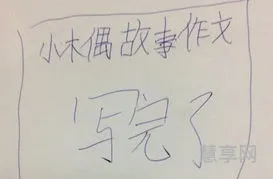 小木偶故事作文
写完了
慧享网